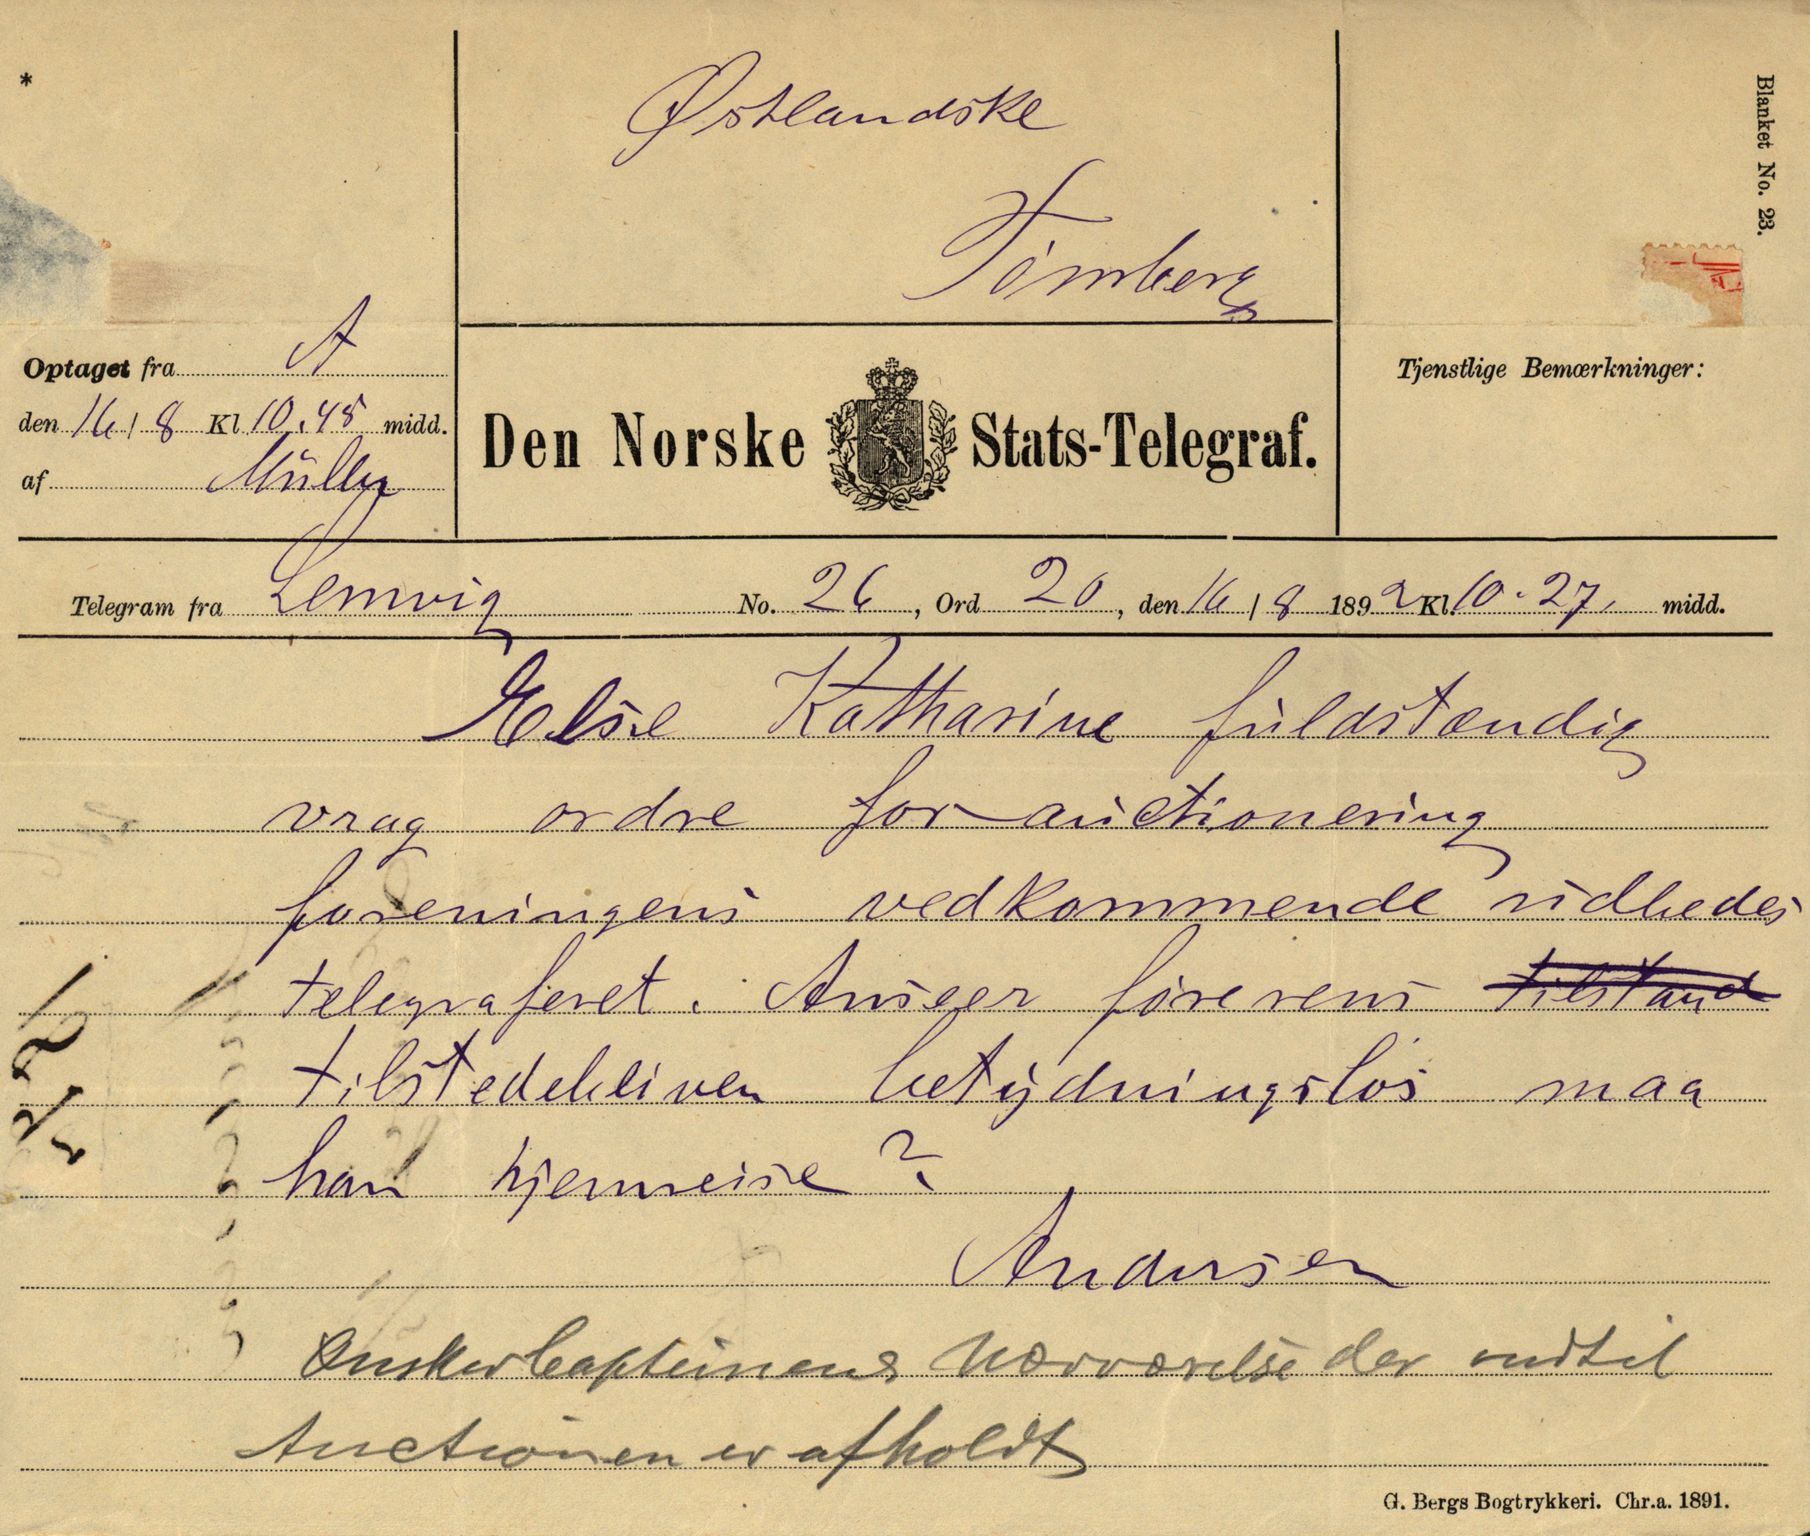 *
Østlandske
Tönsberg
Blanket No. 23.
Optaget fra A
den 16 / 8 Kl 10.45 midd.
af Müller
Den Norske Stats-Telegraf.
Tjenstlige Bemærkninger:
Telegram fra Lemvig No. 26, Ord 20, den 16 / 8 1892 Kl. 10.27. midd.
Else Katharine fuldstændig
vrag ordre for auctionering
foreningens vedkommende udbedes
telegraferet. Anseer förerens tilstand
tilstedebliven betydningslös maa
han hjemreise?
Andersen
Ønsker Capteinens Nærværelse der indtil
Auctionen er afholdt
G. Bergs Bogtrykkeri. Chr.a. 1891.